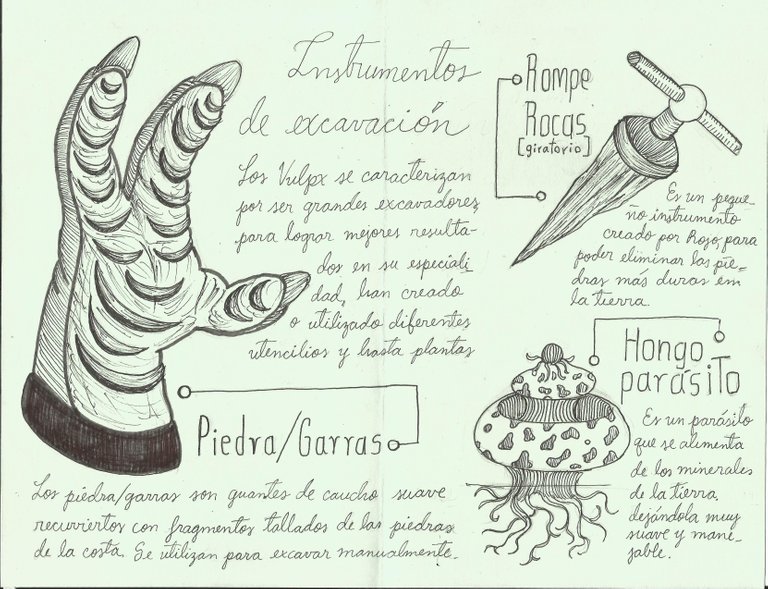 Instrumentos
de excavación
Los Vulpx se caracterizan
por ser grandes excavadores,
para lograr mejores resulta-
dos en su especiali
dad, han creado
o utilizado diferentes
utencilios y hasta plantas
Rompe
Rocas
[giratorio]
Es un peque-
ño instrumento
creado por Rojo, para
poder eliminar las pie-
dras más duras en
la tierra.
Hongo
parásito
Es un parásito
que se alimenta
de los minerales
de la tierra,
dejándola muy
suave y mane-
jable.
Piedra/Garras
Los piedra/garras son guantes de caucho suave
recurviertos con fragmentos tallados de las piedras
de la costa. Se utilizan para excavar manualmente.